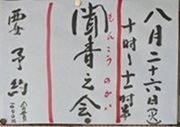 八月二十六日
十時〜十二時
聞香之会。
もんこうのかい
要予約